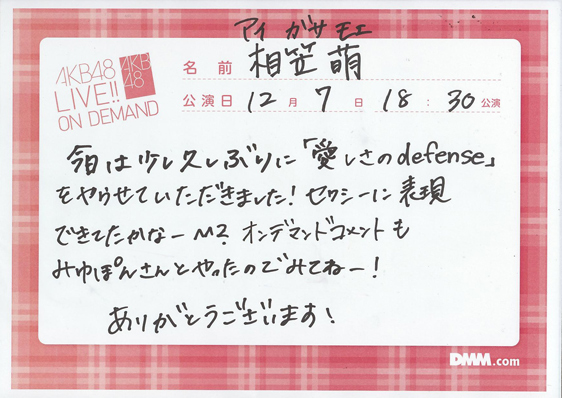 アイ ガサ モエ
AKB48
LIVE!!
ON DEMAND
AKB
48
名前 相笠 萌
公演日 12月 7日 18:30 公演
今日は少し久しぶりに「愛しさのdefense」
をやらせていただきました!セクシーに表現
できてたかなー~? オンデマンドコメントも
みゆぽんさんとやったのでみてねー!
ありがとうございます!
DMM.com